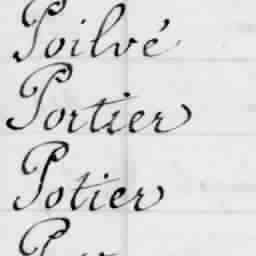 Poilvé
Portier
Potier